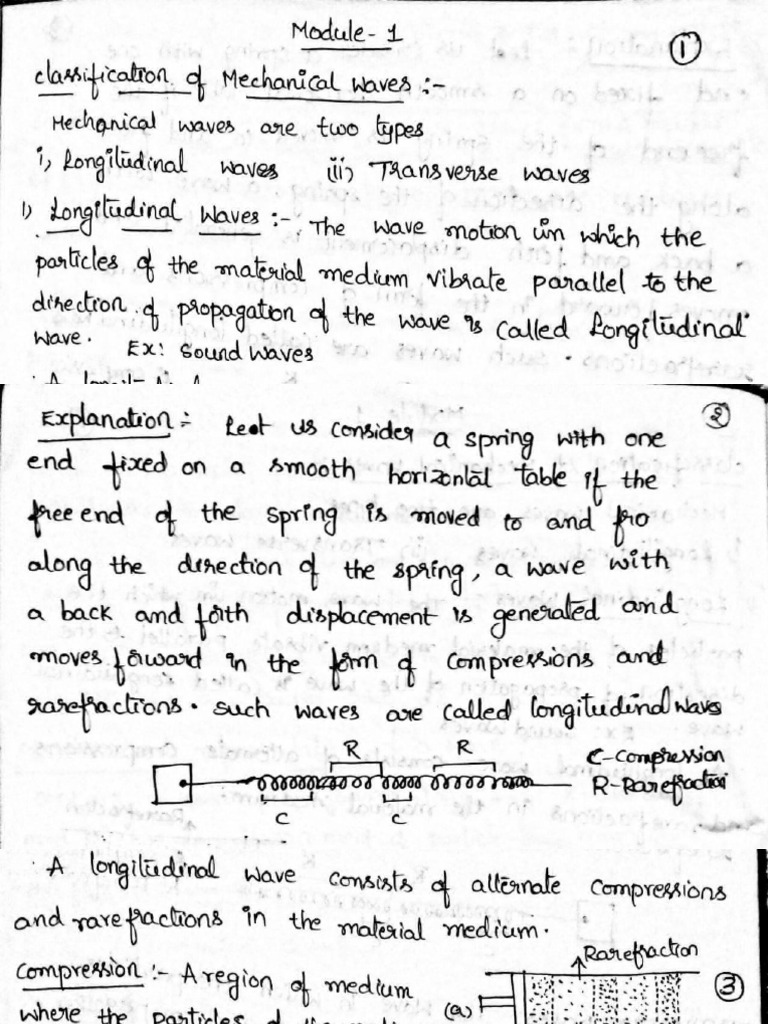 Module-1
①
classification of Mechanical waves :-
Mechanical waves are two types
i) Longitudinal waves (ii) Transverse waves
1) Longitudinal waves :- The wave motion in which the
particles of the material medium vibrate parallel to the
direction of propagation of the wave is called Longitudinal
wave. Ex: Sound waves
Explanation :- Let us consider a spring with one
②
end fixed on a smooth horizontal table if the
free end of the spring is moved to and fro
along the direction of the spring, a wave with
a back and forth displacement is generated and
moves forward in the form of compressions and
rarefractions. such waves are called longitudinal waves
R R C-Compression
R-Rarefraction
C C
A longitudinal wave consists of alternate compressions
and rarefractions in the material medium.
Rarefraction
Compression :- A region of medium
③
where the particles
(a)